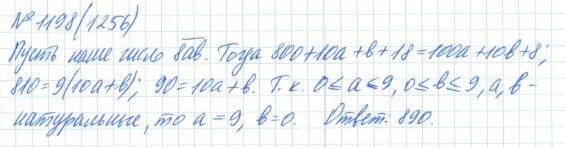 № 1198(1256)
Пусть наше число 8ав. Тогда 800+10а+в+18=100а+10в+8;
810=9(10а+в); 90=10а+в. Т.к. 0≤а≤9, 0≤в≤9, а, в-
натуральные, то а=9, в=0. Ответ: 890.